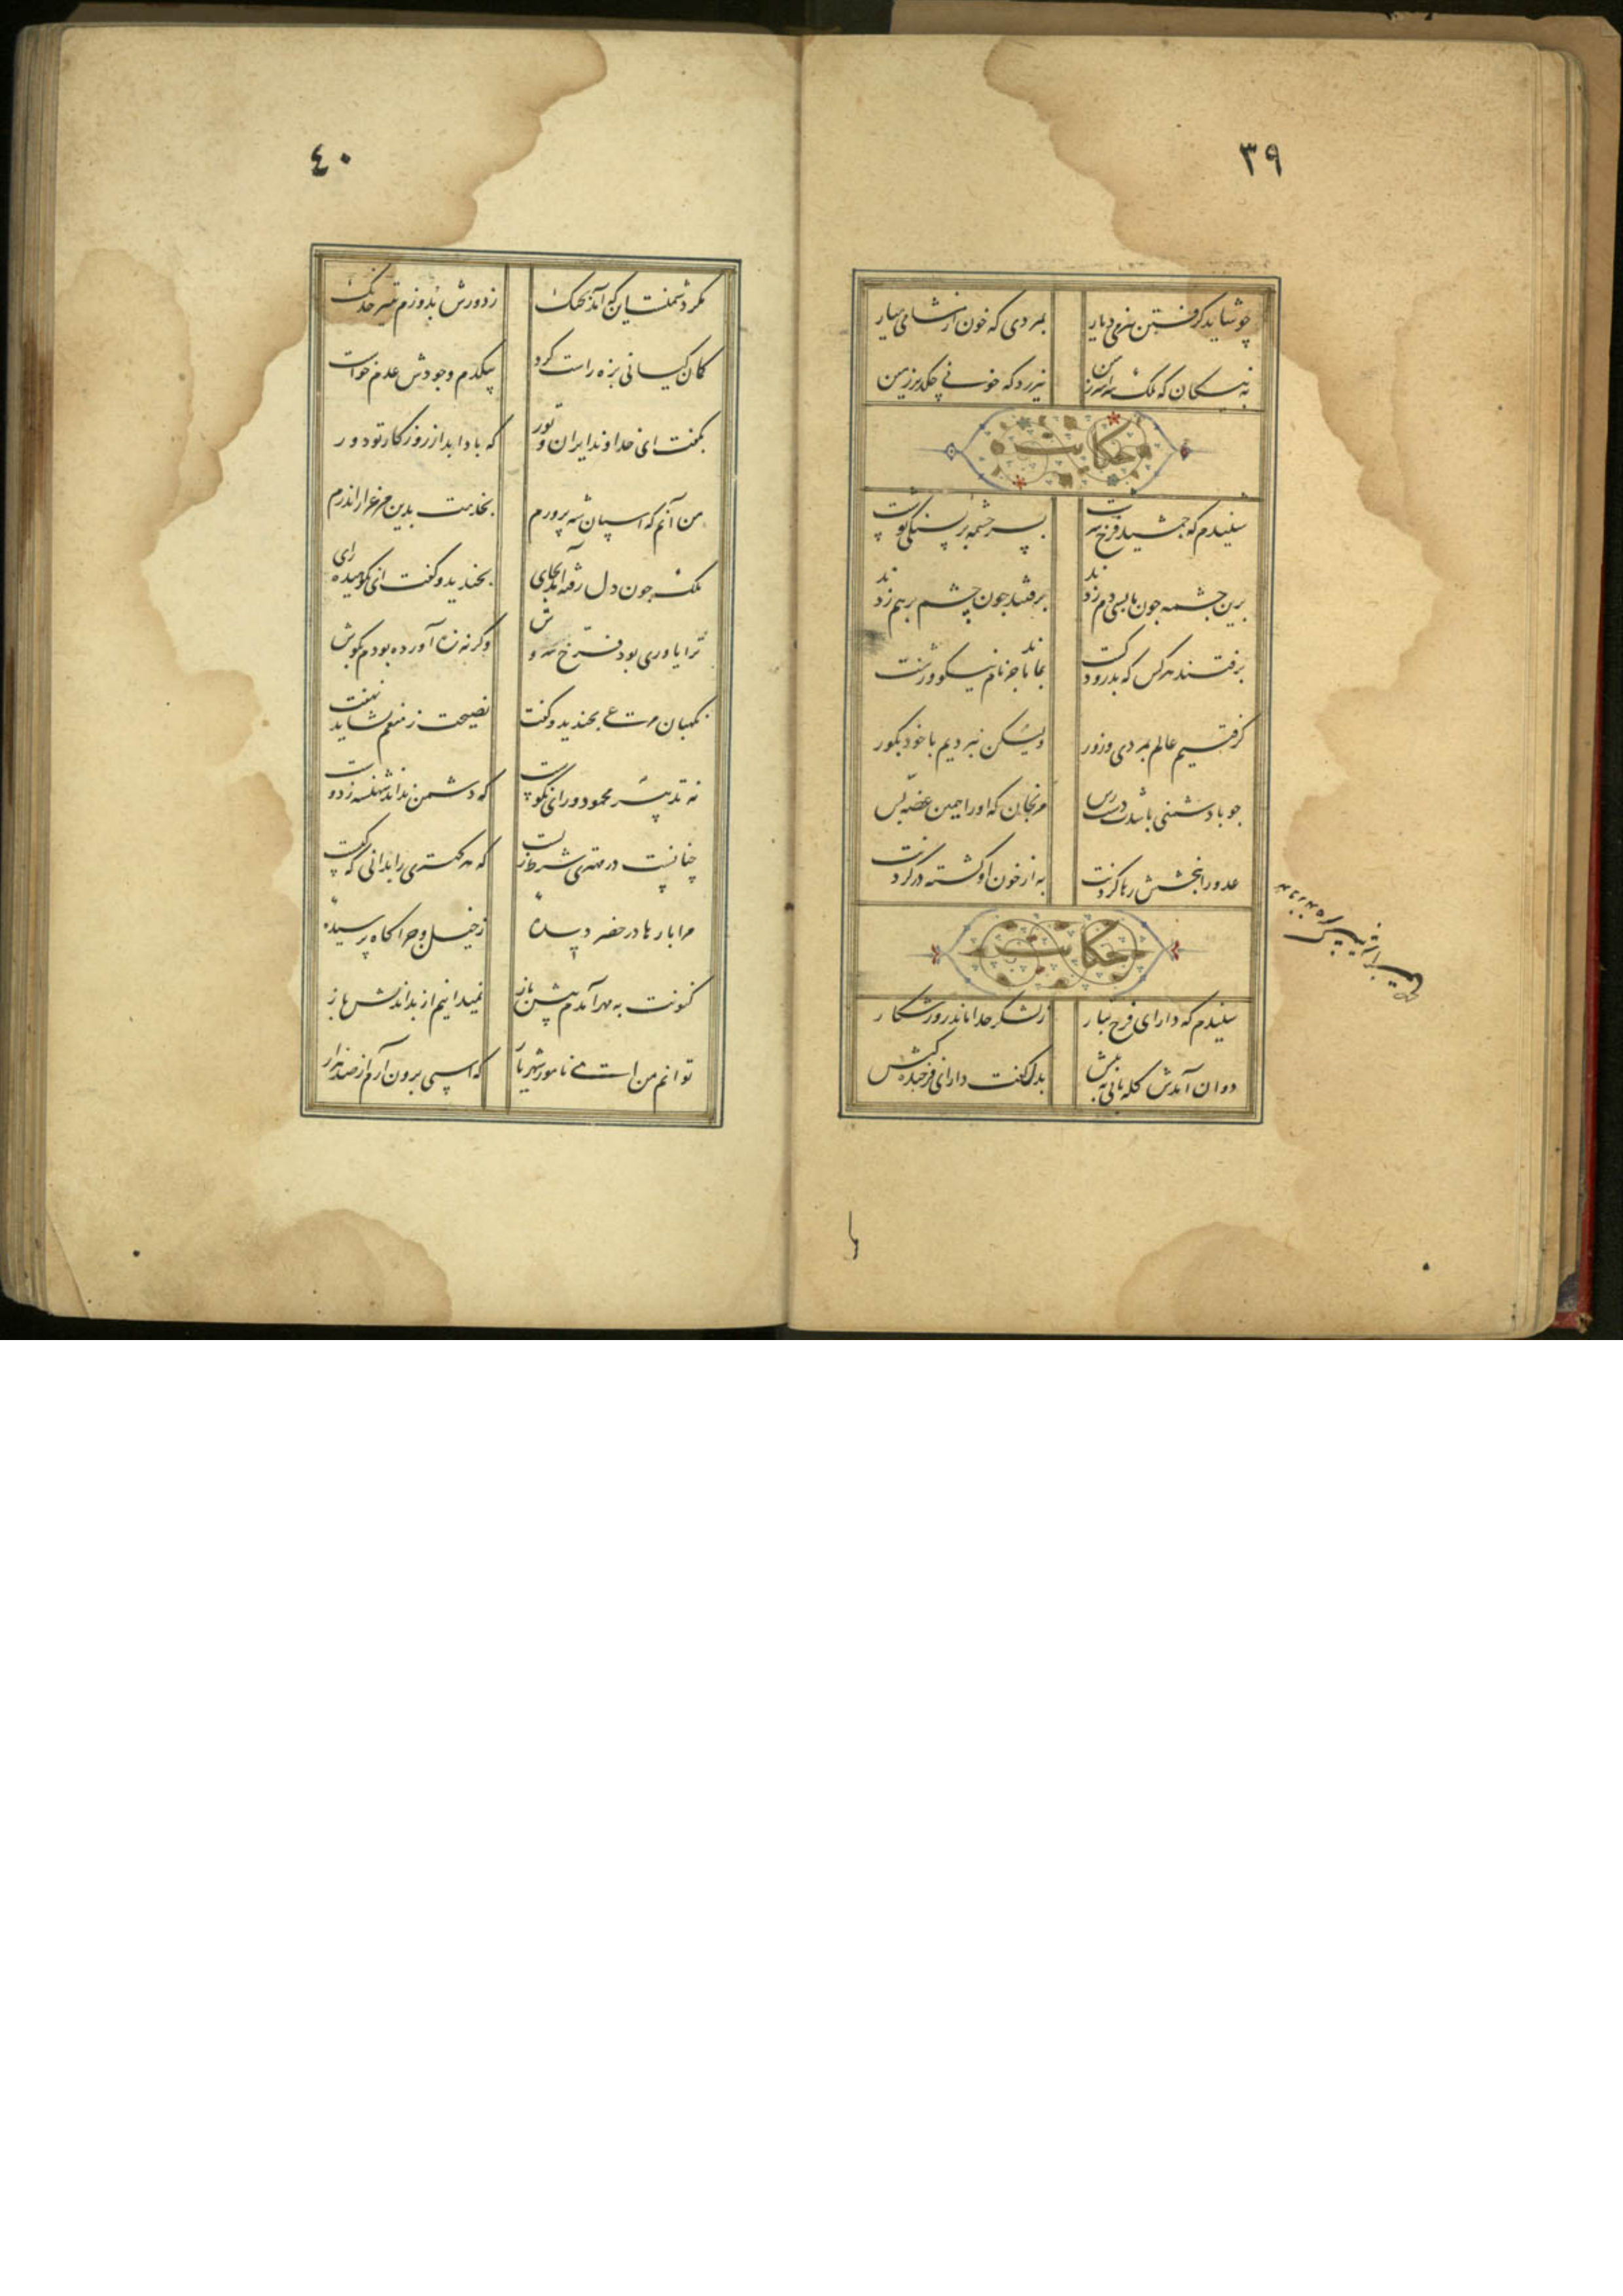 ٣٩
چو شاید گرفتن بنرمی دیار بمردی که خون از مشامی میار
به نیکان که ملک سراسر زمین نیرزد که خونی چکد بر زمین
حکایت
شنیدم که جمشید فرخ سرشت بسر چشمه بر بسنگی نوشت
برین چشمه چون ما بسی دم زدند برفتند چون چشم بر هم زدند
برفتند هر کس که بدرود کشت نماند بجز نام نیکو و زشت
گرفتیم عالم بمردی و زور ولیکن نبردیم با خود بگور
چو با دشمنی باشدت دست رس مرنجان که او را همین غصه بس
عدو را ببخشش رها کردنت به از خون او کشته در گردنت
حکایت
شنیدم که دارای فرخ تبار ز لشکر جدا ماند روز شکار
دوان آمدش گله بانی به پیش بدل گفت دارای فرخنده کیش
٤٠
مگر دشمنست این که آمد بجنگ ز دورش بدوزم بتیر خدنگ
کمان کیانی بزه راست کرد بیکدم وجودش عدم خواست
بگفت ای خداوند ایران و تور که باد ابد از روزگار تو دور
من آنم که اسپان شه پرورم بخدمت بدین مرغزار اندرم
ملک چون دل رفته آمد بجای بخندید و گفت ای نکوهیده رای
ترا یاوری بود فرخ سروش وگرنه زه آورده بودم بگوش
نگهبان مرعی بخندید و گفت نصیحت ز منعم نشاید نهفت
نه تدبیر محمود و رای نکوست که دشمن نداند شهنشه ز دوست
چنانست در مهتری شرط زیست که هر کهتری را بدانی که کیست
مرا بارها در حضر دیده ز خیل و چراگاه پرسیده
کنونت به مهر آمدم پیش باز نمیدانیم از بداندیش باز
توانم من ای نامور شهریار که اسپی برون آرم از صد هزار